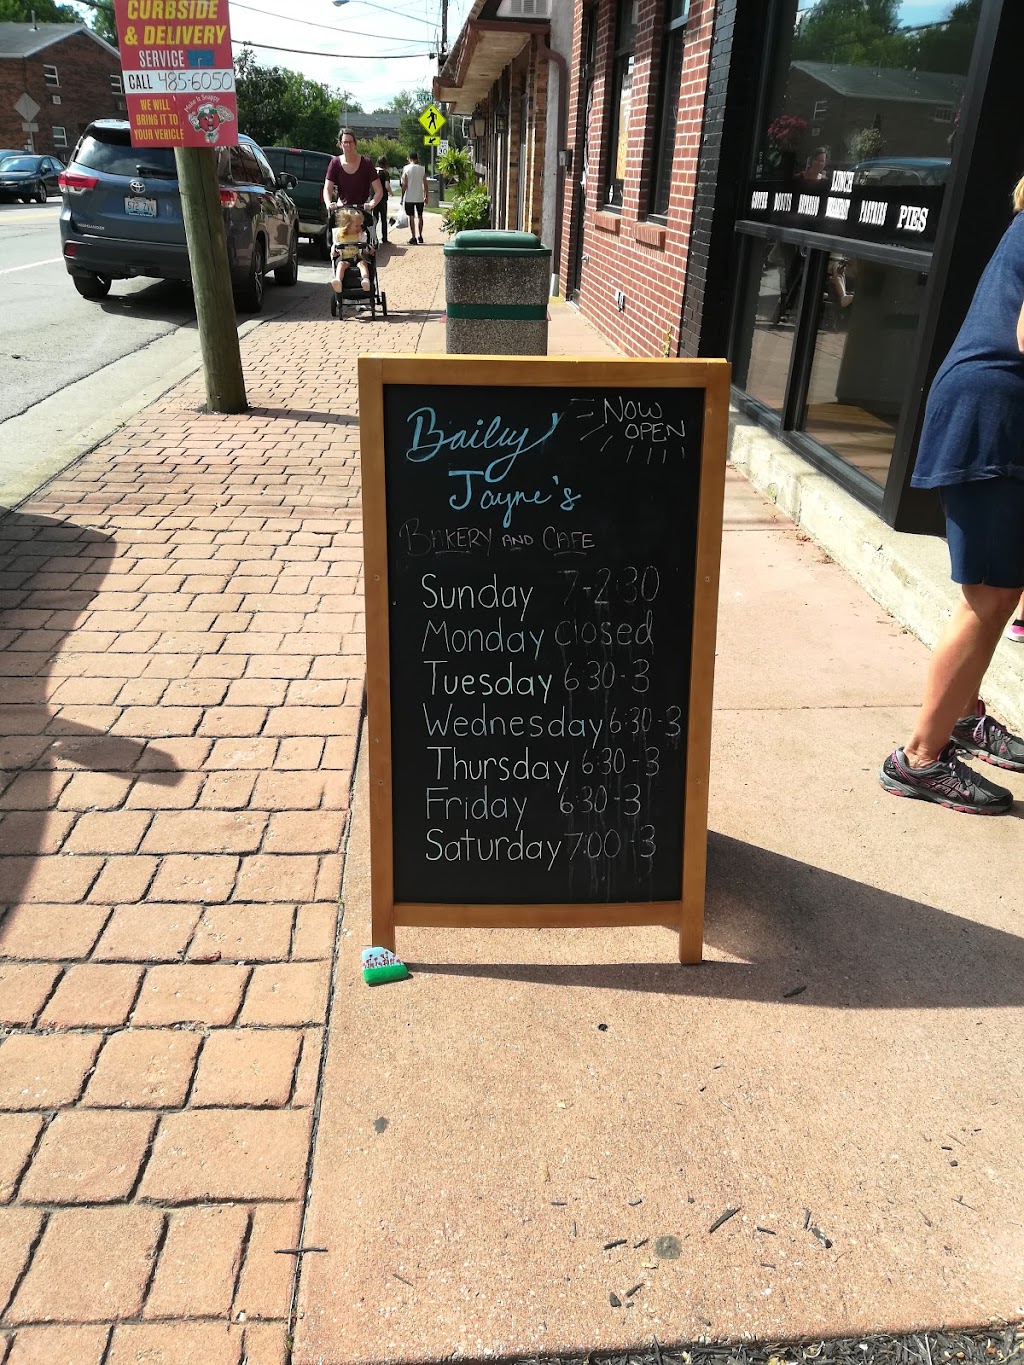 CURBSIDE
& DELIVERY
SERVICE
CALL 485-6050
WE WILL
BRING IT TO
YOUR VEHICLE
Make it Snappy
LUNCH
COFFEE DONUTS BREAKFAST PASTRIES PIES
Bailey
Jayne's
NOW
OPEN
BAKERY AND CAFE
Sunday 7-2:30
Monday closed
Tuesday 6:30-3
Wednesday 6:30-3
Thursday 6:30-3
Friday 6:30-3
Saturday 7:00-3